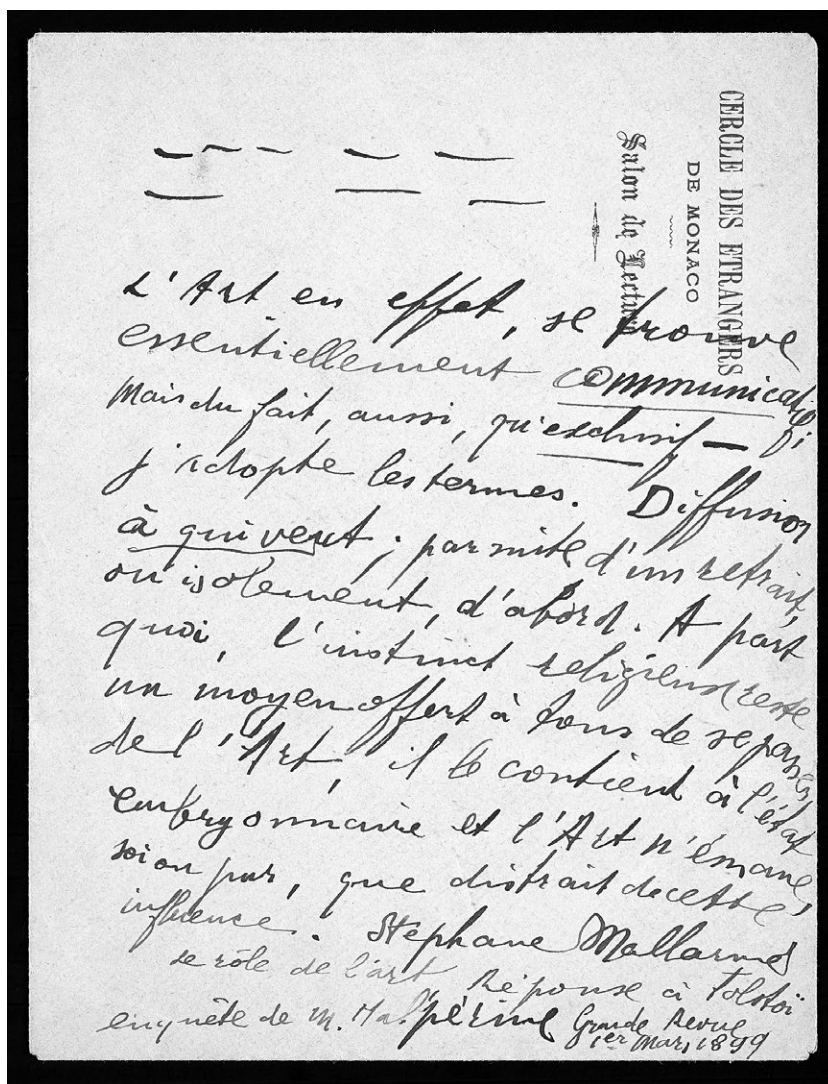 CERCLE DES ETRANGERS
DE MONACO
Salon de Lecture
L'Art en effet, se trouve
essentiellement communicatif
Mais du fait, aussi, qu'exclusif — si
j'adopte les termes. Diffusion
à qui veut ; par suite d'un retrait,
ou isolement, d'abord. A part
quoi, l'instinct religieux reste
un moyen offert à tous de se passer
de l'Art, il le contient à l'état
embryonnaire et l'Art n'émane,
soi ou pur, que distrait de cette
influence. Stéphane Mallarmé
Le rôle de l'art, Réponse à Tolstoï
enquête de M. Halpérine Grande Revue
1er Mars 1899